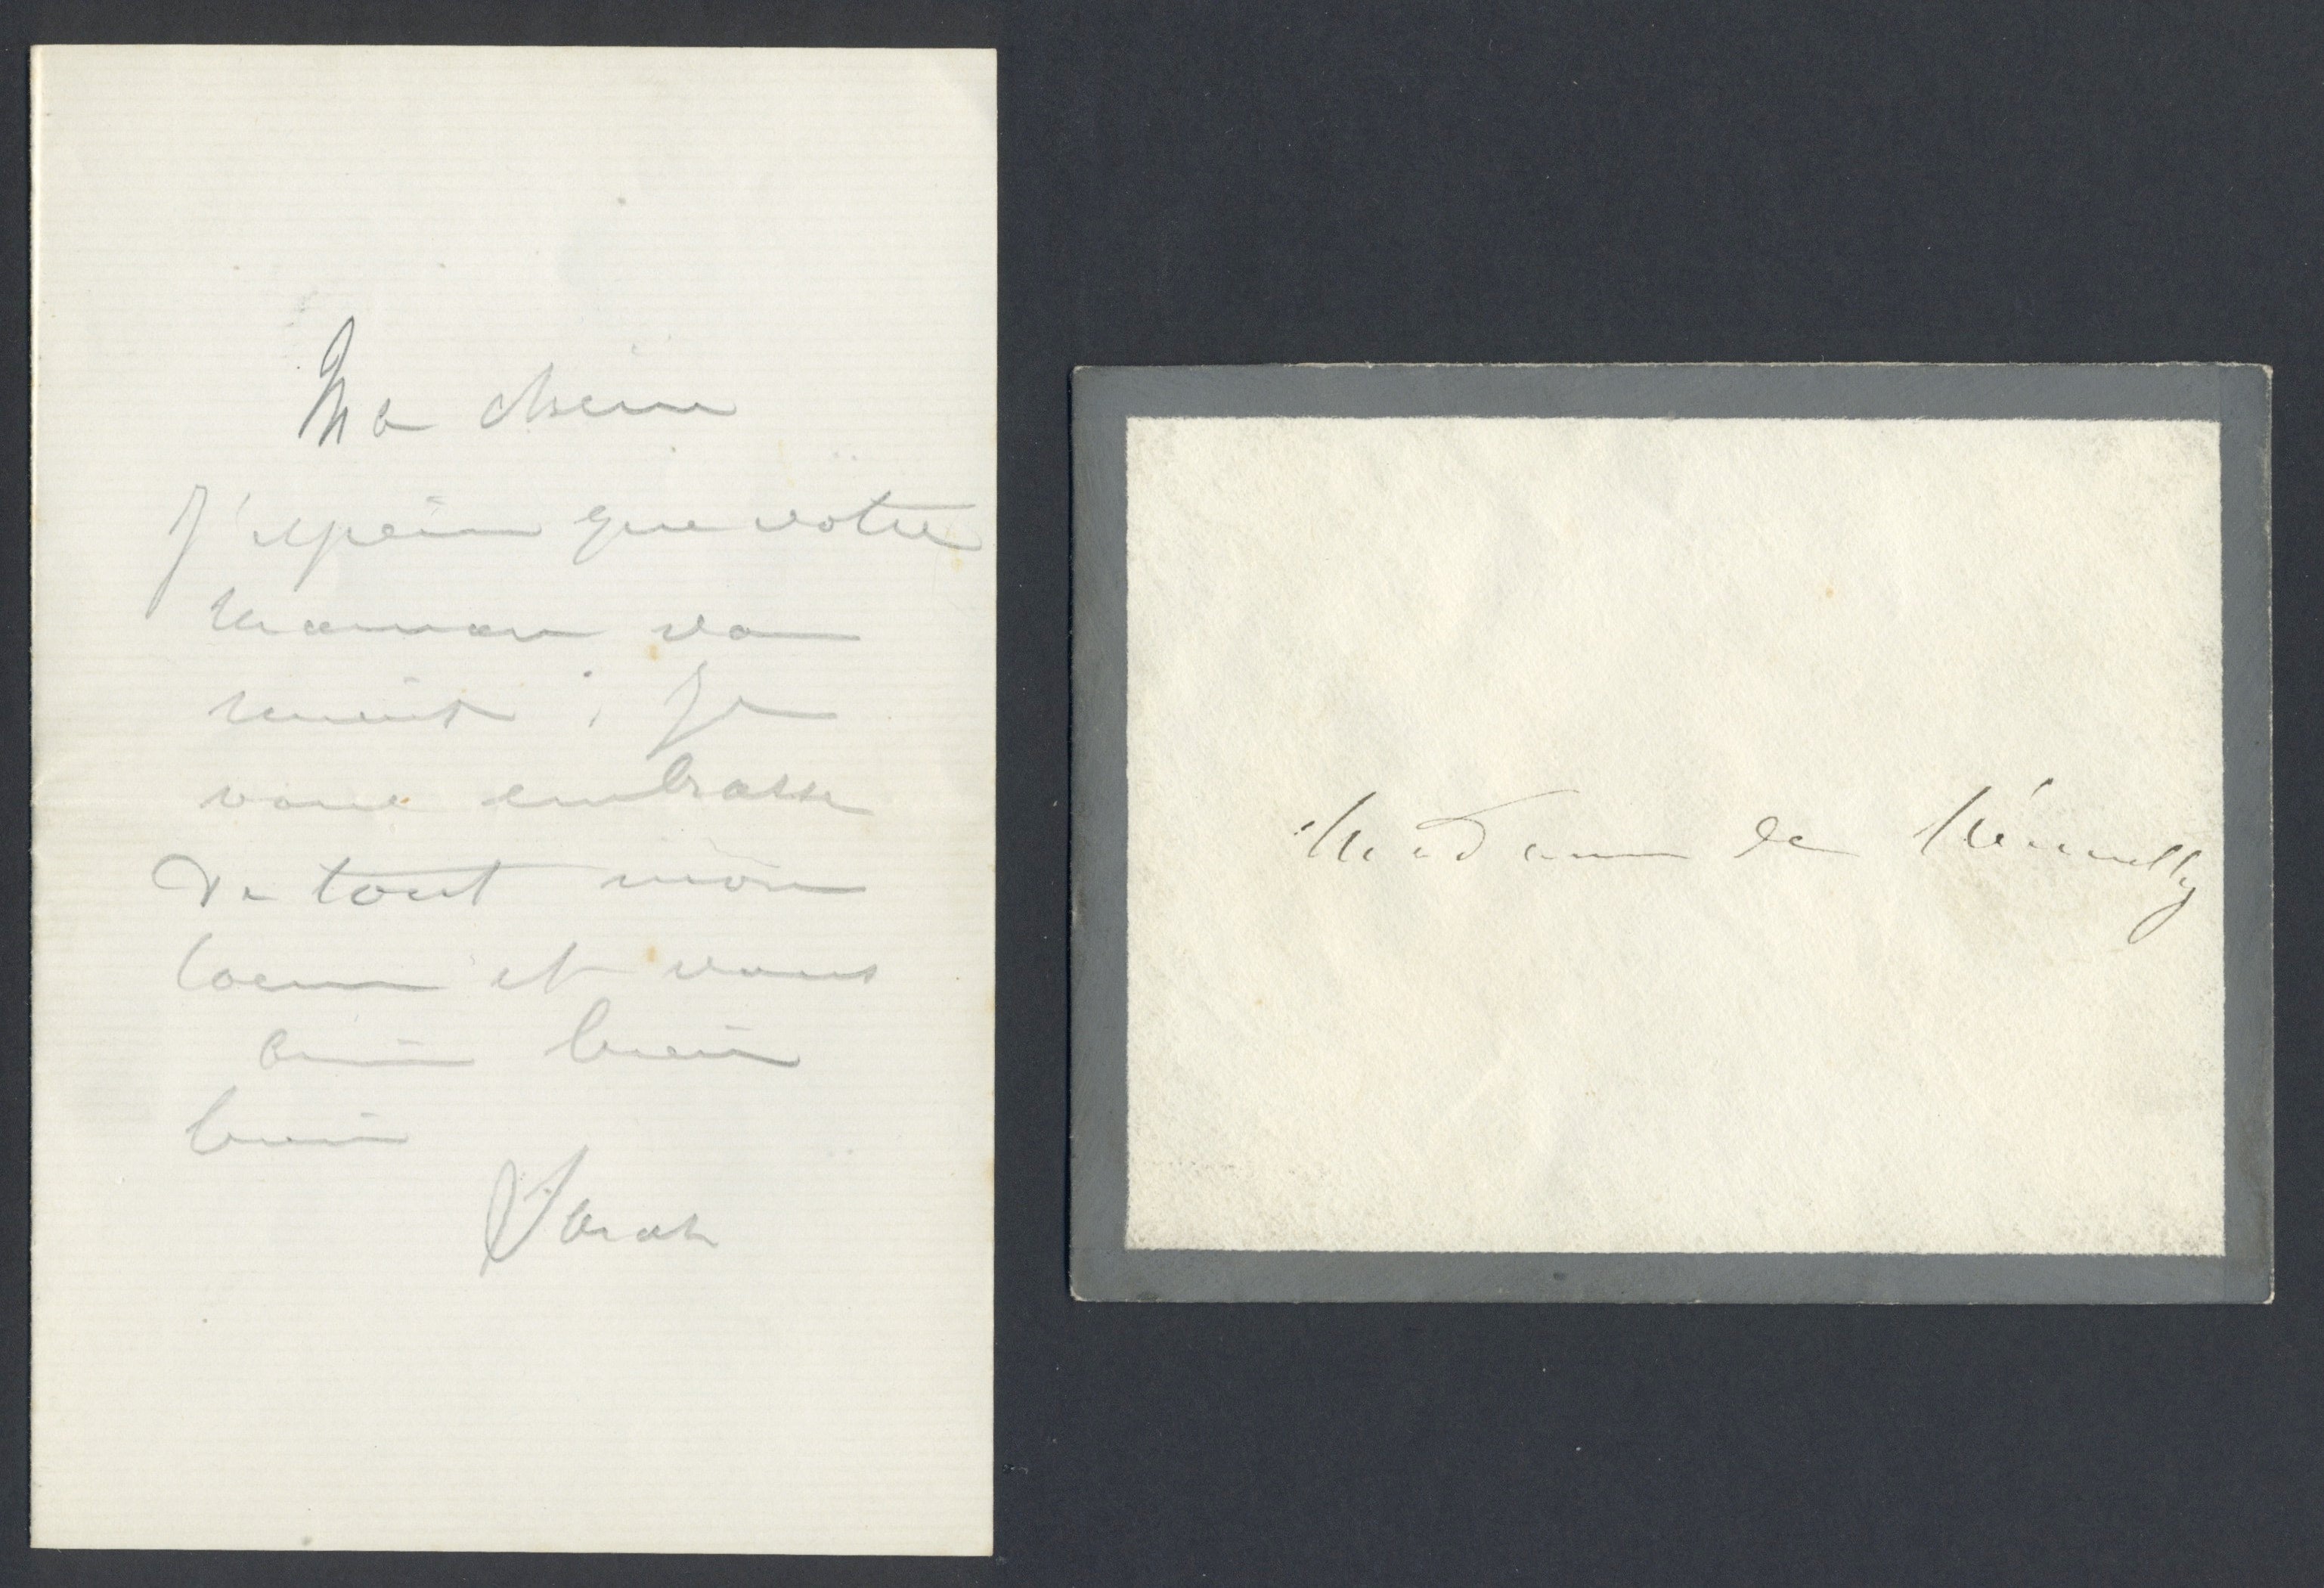 Ma chérie
J'espère que votre
maman va
mieux ; Je
vous embrasse
de tout mon
coeur et vous
aime bien
bien
Sarah
Madame de